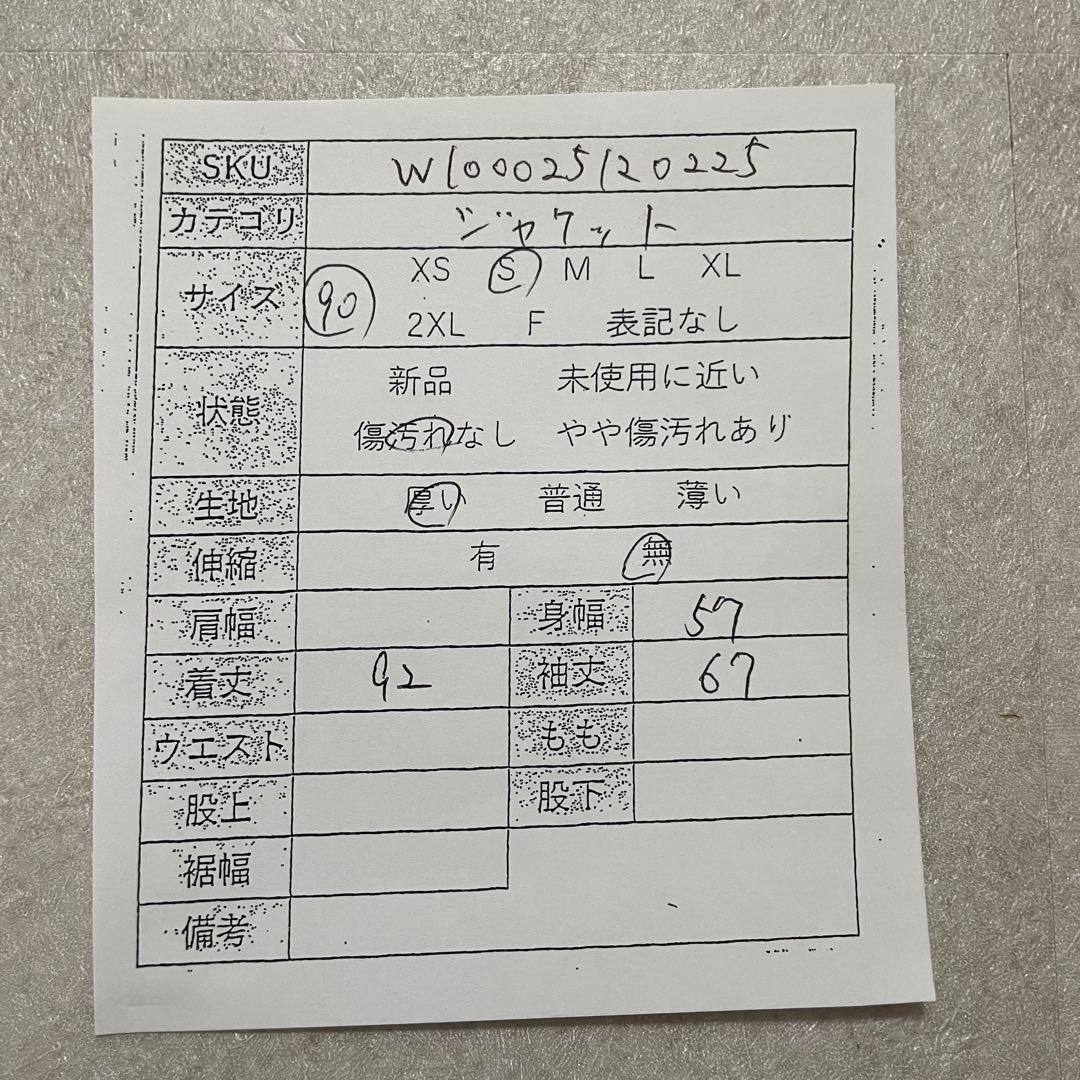 SKU W100025120225
カテゴリ ジャケット
サイズ 90 XS S M L XL
2XL F 表記なし
状態 新品 未使用に近い
傷汚れなし やや傷汚れあり
生地 厚い 普通 薄い
伸縮 有 無
肩幅 身幅 57
着丈 92 袖丈 67
ウエスト もも
股上 股下
裾幅
備考